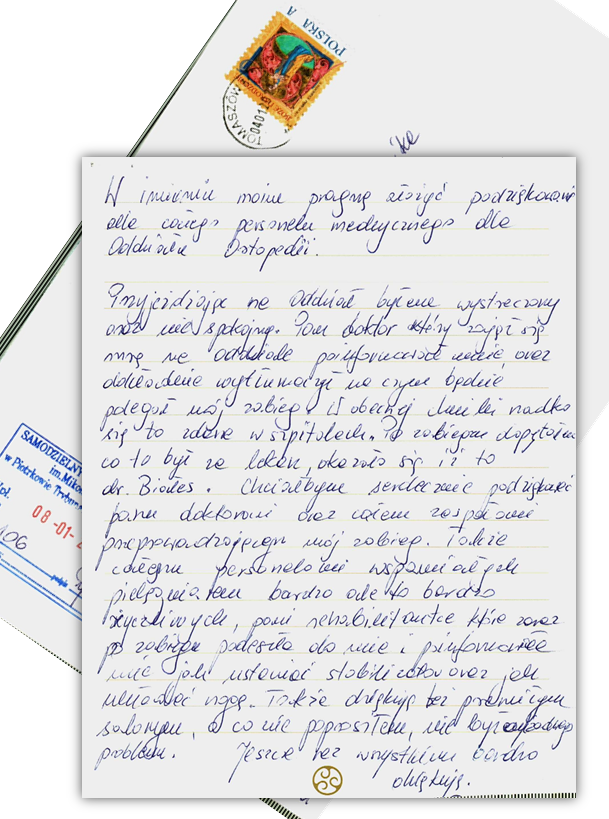 POLSKA A
TOMASZÓW
0401
W imieniu moim pragnę złożyć podziękowani
dla całego personelu medycznego dla
Oddziału Ortopedii.
Przyjeżdżając na Oddział byłam wystraszony
oraz nie spokojny. Pan doktor który zajął się
mną na oddziale poinformował mnie oraz
dokładnie wytłumaczył na czym będzie
polegał mój zabieg. W obecnej chwili rzadko
się to zdarza w szpitalach. Po zabiegu dopytałem
co to był za lekarz, okazało się iż to
dr. Chciałbym serdecznie podziękować
panu doktorowi oraz całemu zespołowi
przeprowadzającym mój zabieg. Także
całemu personelowi wspaniałych
pielęgniarek bardzo ale to bardzo
życzliwych, pani rehabilitantce która zaraz
po zabiegu podeszła do mnie i poinformowała
mnie jak ustawiać stabilizator oraz jak
układać nogę. Także dziękuję też paniom
salowym, o co nie poprosiłem, nie było żadnego
problemu. Jeszcze raz wszystkim bardzo
dziękuję.
SAMODZIELNY
im. Mikoł
w Piotrkowie Trybun
08-01-